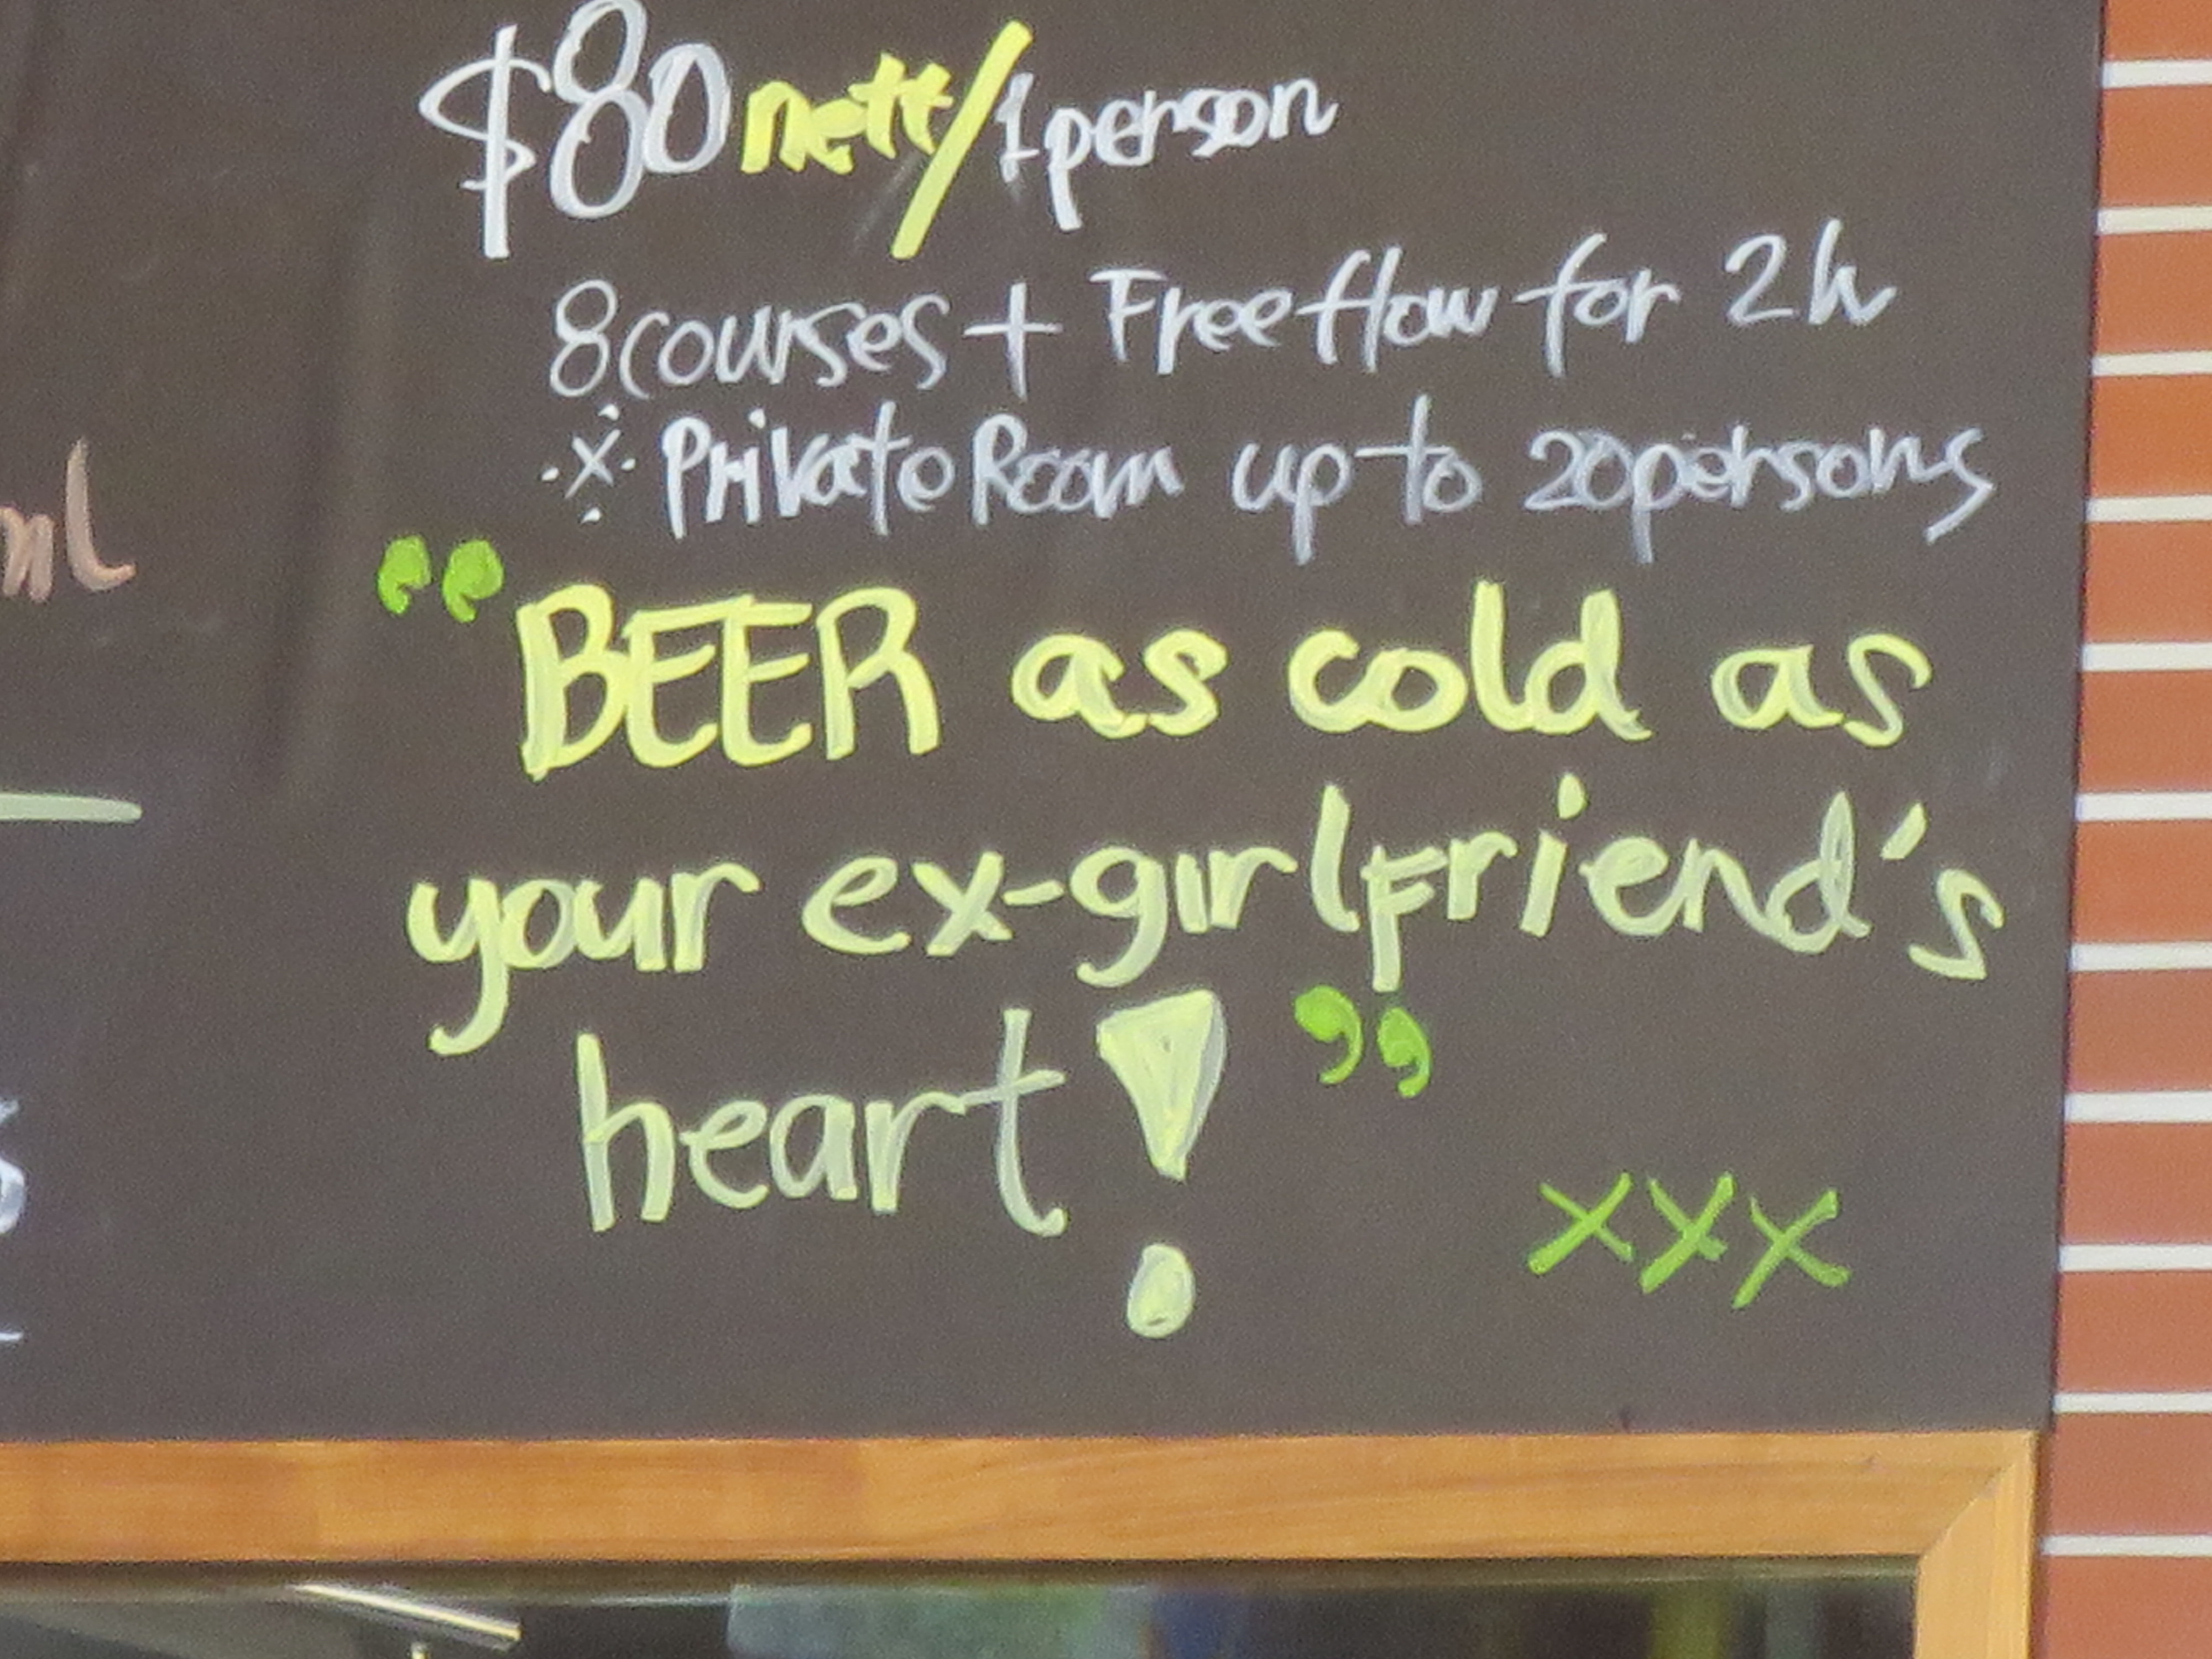 $80 nett/1person
8courses + Free flow for 2h
※ Private Room up to 20persons
nl
“BEER as cold as
your ex-girlfriend's
heart!”
xxx